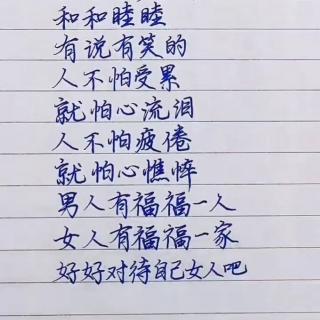 和和睦睦
有说有笑的
人不怕受累
就怕心流泪
人不怕疲倦
就怕心憔悴
男人有福福一人
女人有福福一家
好好对待自己女人吧